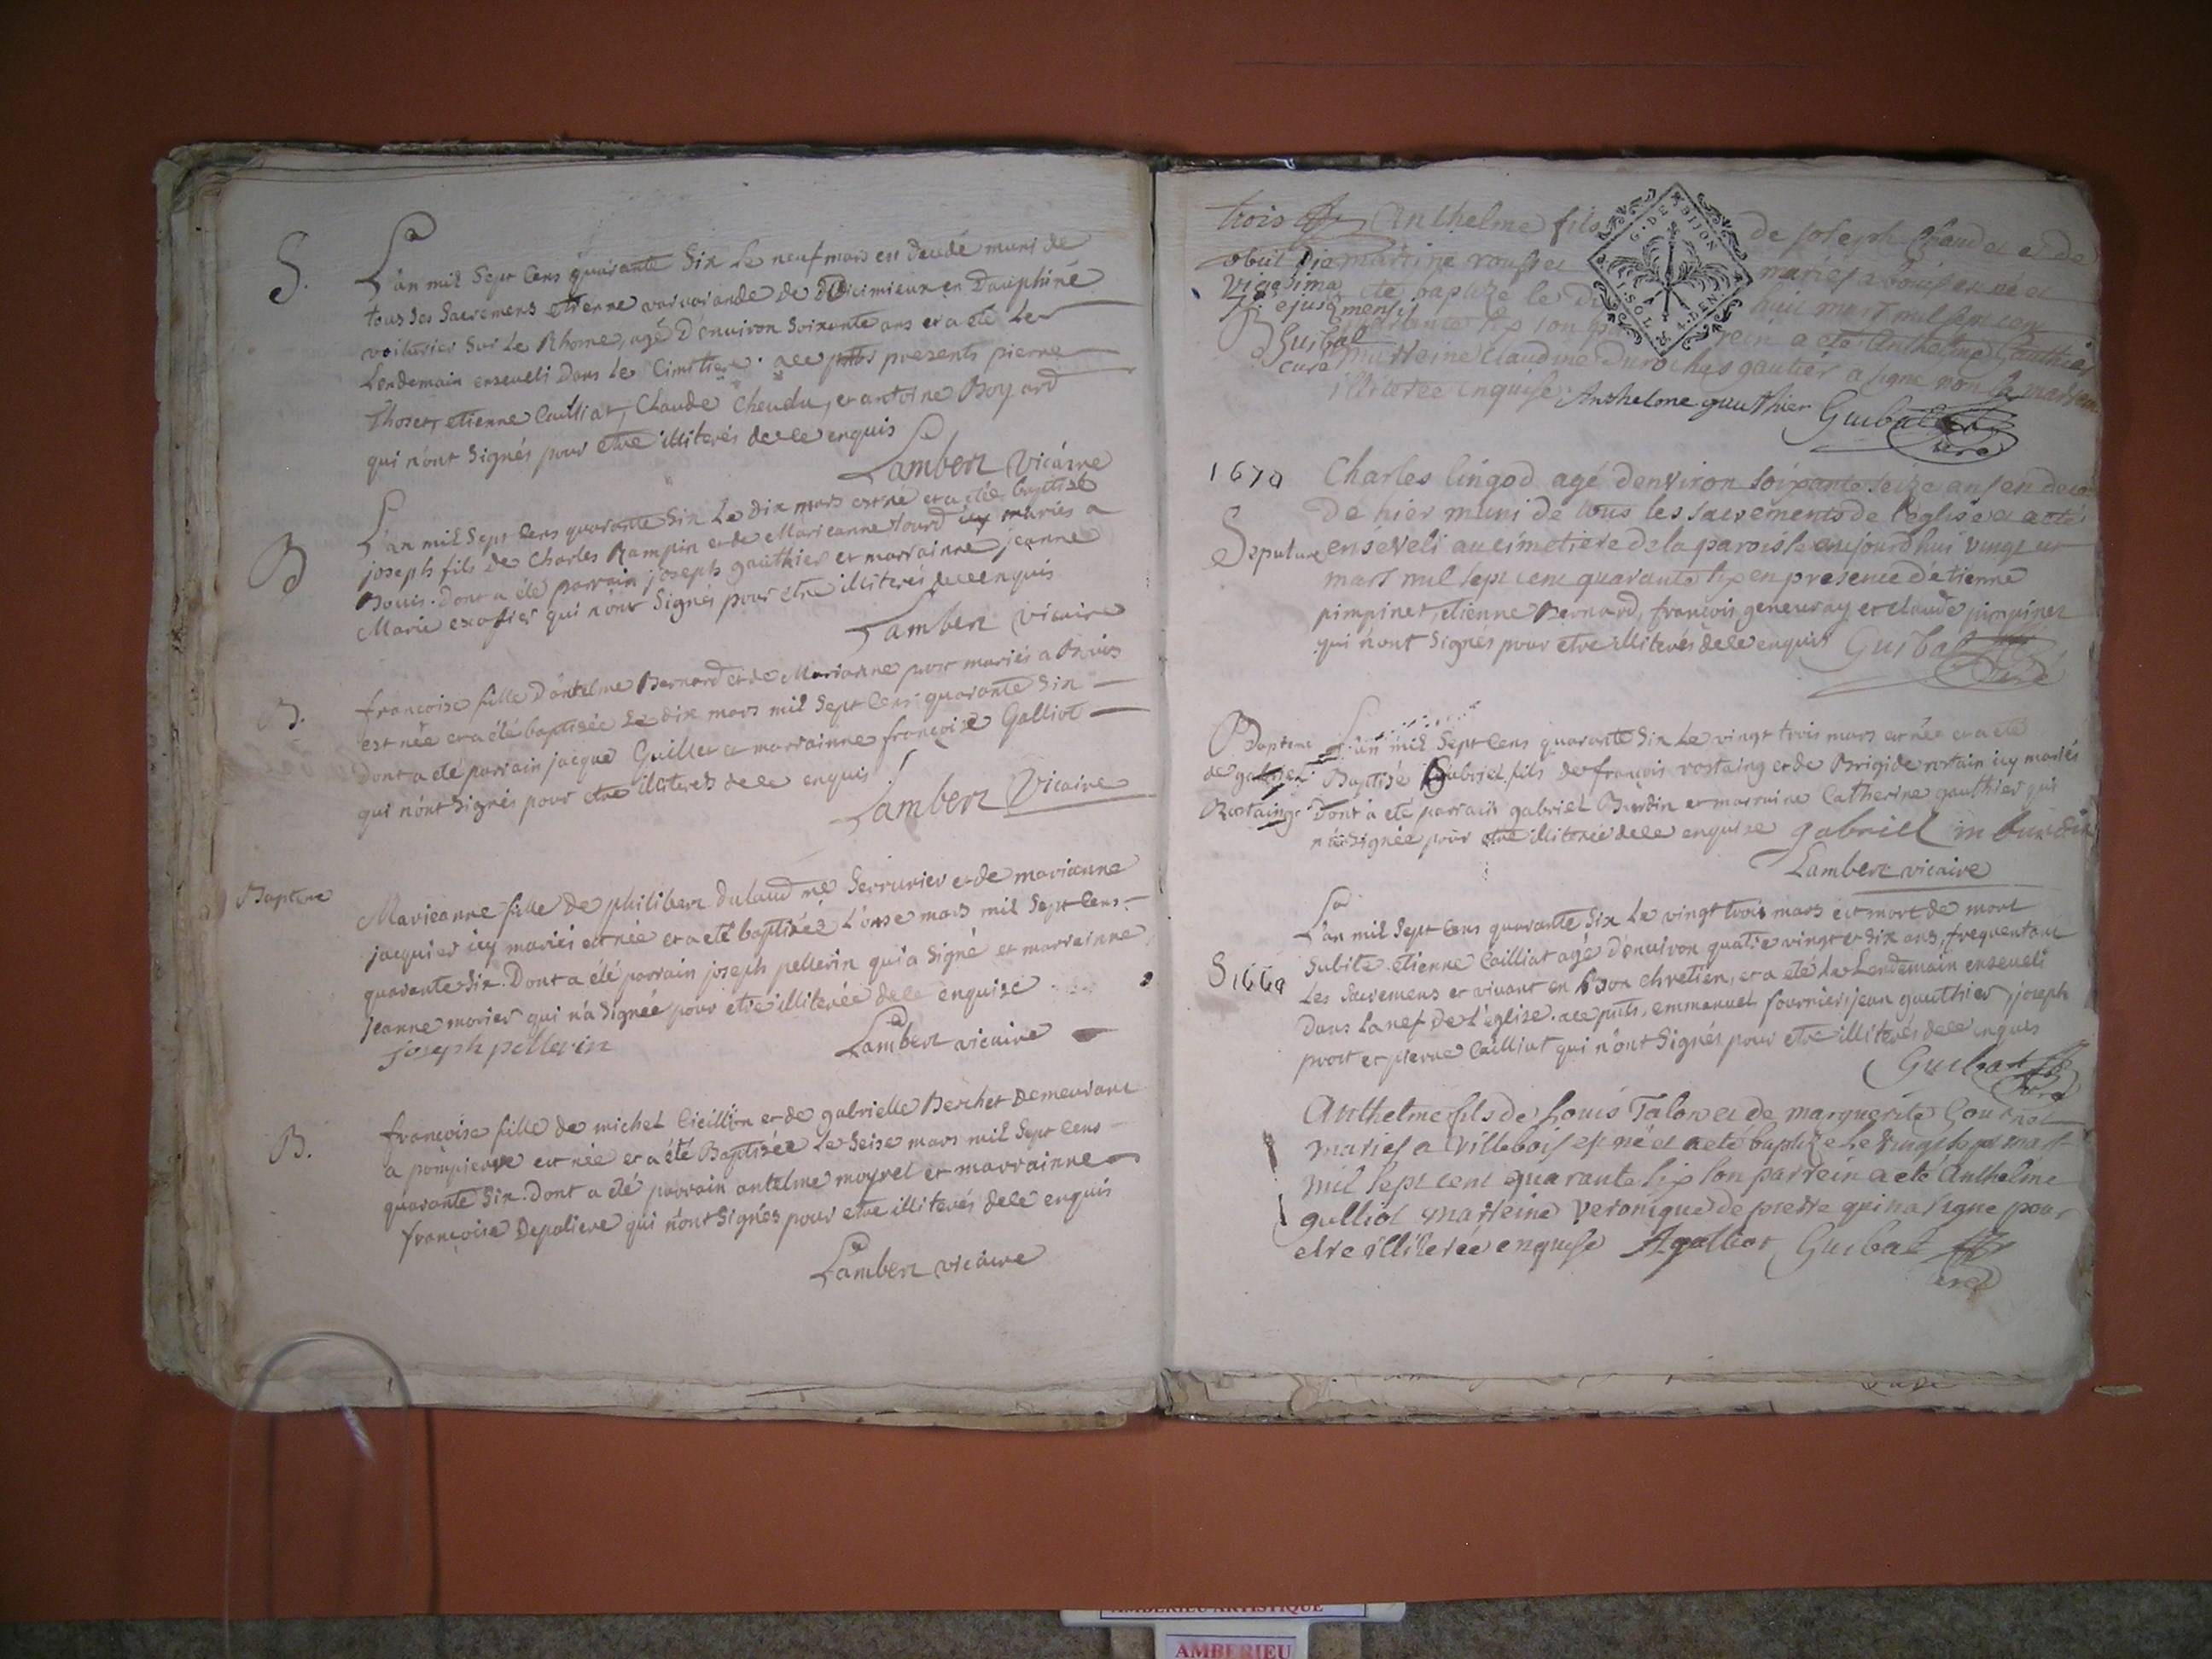 S.
L'an mil Sept Cens quarante Six Le neuf mars est decedé muni de
tous Ses Sacremens etienne de en Dauphiné
voiturier Sur Le Rhome, agé D'environ Soixante ans et a eté Le
Lendemain enseveli Dans Le Cimitiere. ace presents pierre
Thoset, etienne Cailliat, Claude Cheudu, et antoine Boyard
qui n'ont Signés pour etre illiterés dece enquis
Lambert Vicaire
B
L'an mil Sept Cens quarante Six Le Dix mars est né et a eté baptisé
joseph fils De Charles Rampin et de Marieanne jourd icy mariés a
Bouis. Dont a été parrain joseph gauthier et marrainne jeanne
Marie qui n'ont Signés pour etre illiterés dece enquis
Lambert vicaire
B.
francoise fille D'antelme Bernard et de Marianne prost mariés a Bouis
est née et a été baptisée Le dix mars mil Sept Cens quarante Six
Dont a eté parrain jacque Guillet et marrainne françoise Galliot
qui n'ont Signés pour etre illiterés dece enquis
Lambert Vicaire
Bapteme
Marieanne fille De philibert dulaud me Serrurier et de marianne
jacquier icy mariés est née et a eté baptisée L'onse mars mil Sept Cens
quarante Six. Dont a été parrain joseph pellerin qui a Signé et marrainne
jeanne morier qui n'a Signée pour etre illiterée dece enquise
joseph pellerin
Lambert vicaire
B.
francoise fille de michel Cicillion et de gabrielle Berchet Demeurant
a pompierre est née et a été Baptisée Le Seise mars mil Sept Cens
quarante Six. Dont a eté parrain antelme moyret et marrainne
françoise Depaliere qui n'ont Signés pour etre illiterés dece enquis
Lambert vicaire
trois Anthelme fils de Joseph Cheudu et de
obiit die martine rousset mariés a est né et
vigesima eté baptizé le dix huit mars mil sept cent
7a ejusd mensis quarante six son parrein a eté Anthelme Gauthier
Guibal marreine Claudine Duroches gautier a signé non la marreine
curé
illiterée enquise. Anthelme gauthier Guibal curé
G. DE DIJON
1. SOL. 4. DEN.
167a
Charles lingod agé d'environ soixante seize ans en decedé
de hier muni de tous les sacrements de l'eglise et a eté
Seputure enseveli au cimetiere de la paroisse aujourd'hui vingt un
mars mil sept cent quarante six en presence d'etienne
pimpinet, etienne Bernard, françois geneuray et claude pimpinet
qui n'ont Signés pour etre illiterés dece enquis Guibal curé
Bapteme L'an mil Sept Cens quarante Six Le vingt trois mars est né et a eté
de gabriel Baptisé Gabriel fils de françois rostaing et de Brigide rostain icy mariés
Rostaing Dont a eté parrain gabriel Burdin et marraine Catherine gauthier qui
n'a Signée pour etre illiterée dece enquise gabriell
Lambert vicaire
L'an mil Sept Cens quarante Six Le vingt trois mars est mort de mort
Subite etienne Cailliat agé d'environ quatre vingt et Six ans, frequentant
S 166a Les Sacremens et vivant en Bon chretien, et a eté le Lendemain enseveli
Dans La nef De L'eglise. ace pnts, emmanuel fournier, jean gauthier joseph
prost et pierre Cailliat qui n'ont Signés pour etre illiterés dece enquis
Guibal curé
Anthelme fils de Louis Talon et de marguerite Gournol
mariés a Villebois est né et a eté baptize le vingt sept mars
mil sept cent quarante six son parrein a eté Anthelme
gulliot marreine veronique de pierre qui n'a signé pour
etre illiterée enquise A galliot Guibal
curé
AMBERIEU ARTISTIQUE
AMBERIEU